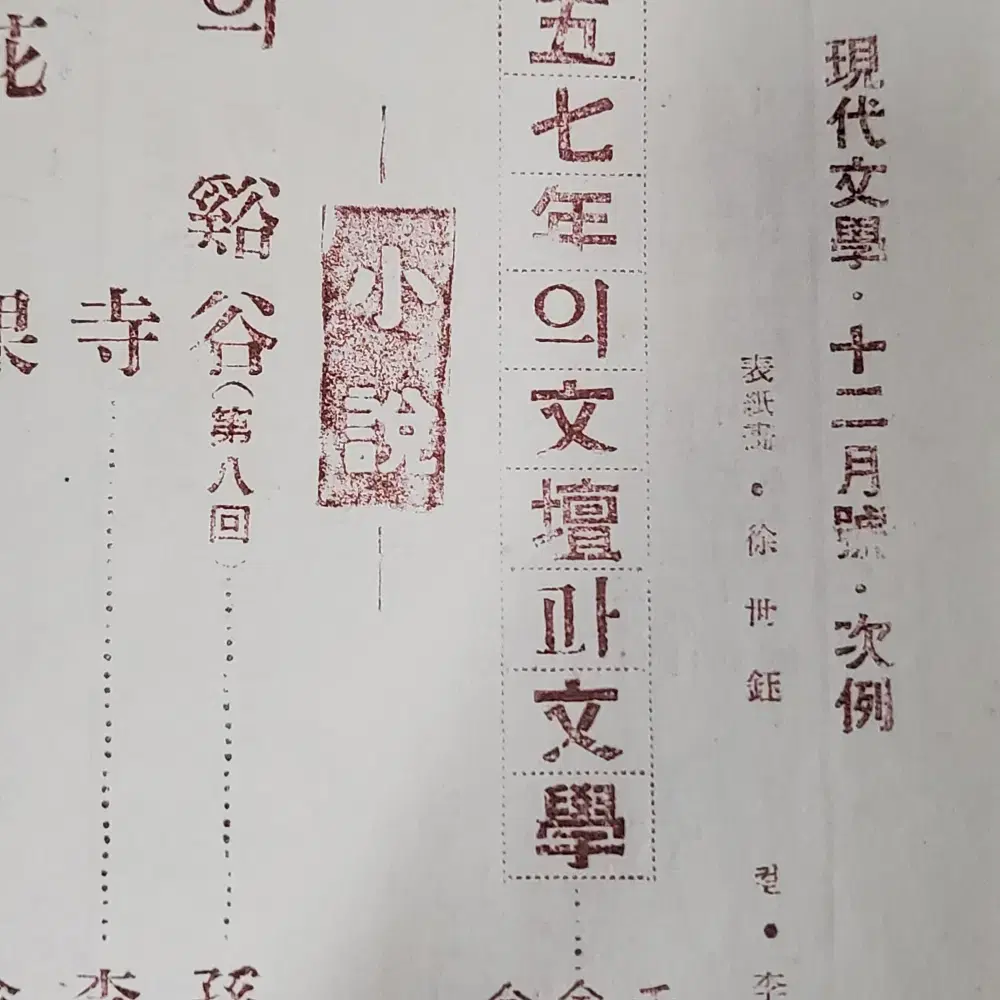 現代文學·十二月號·次例
表紙畵·徐世鈺
컽·李
五七年의文壇과文學
小說
의 谿谷(第八回) 孫
寺 李
花 果